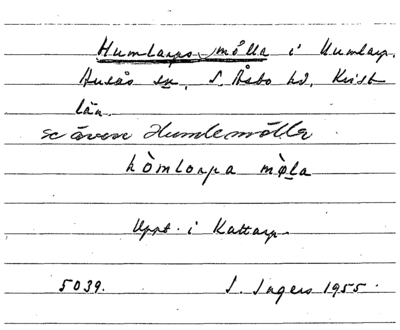 Humlarps mölla i Humlarp.
Huså sn, S. Åsbo hd, Krist
län.
se även Humlemölla
hòmlarpa mø̀la
Uppt. i Kattarp.
5039. I. Ingers 1955.